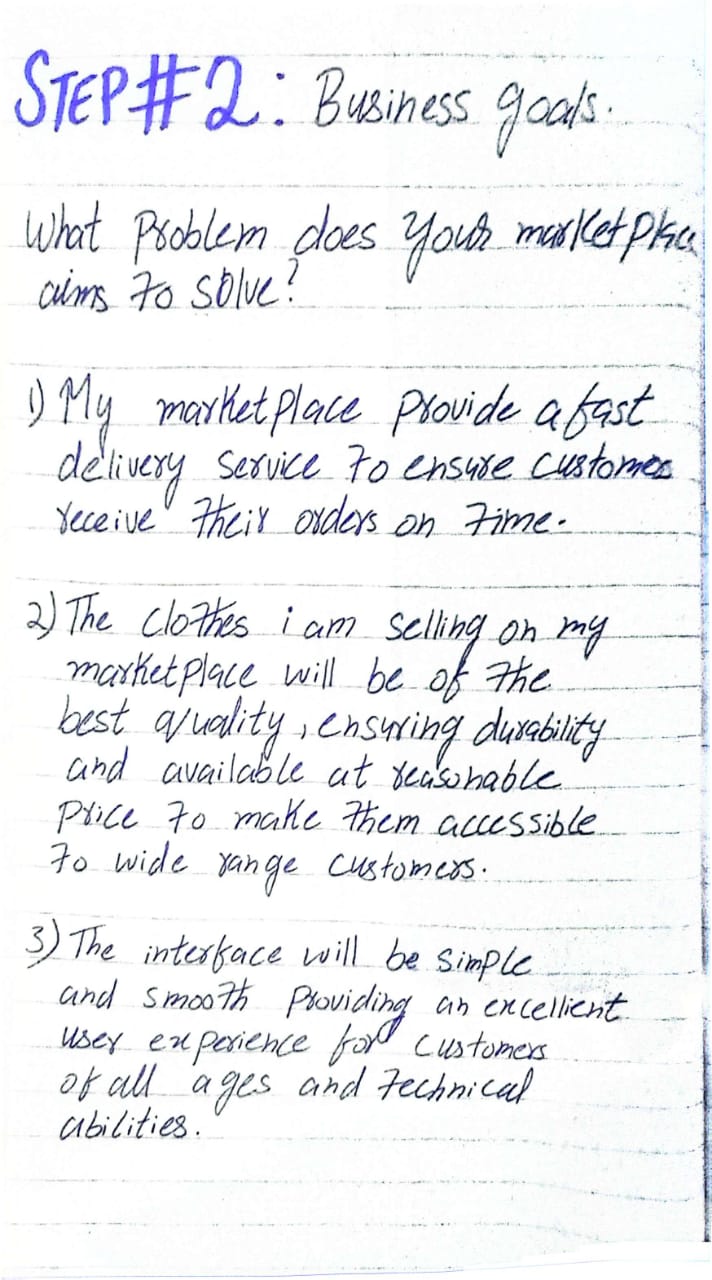 STEP#2: Business goals.
What problem does your marketplace
aims to solve?
1) My marketplace provide a fast
delivery service to ensure customers
receive their orders on time.
2) The clothes i am selling on my
marketplace will be of the
best quality, ensuring durability
and available at reasonable
price to make them accessible
to wide range customers.
3) The interface will be simple
and smooth providing an excellient
user experience for customers
of all ages and technical
abilities.